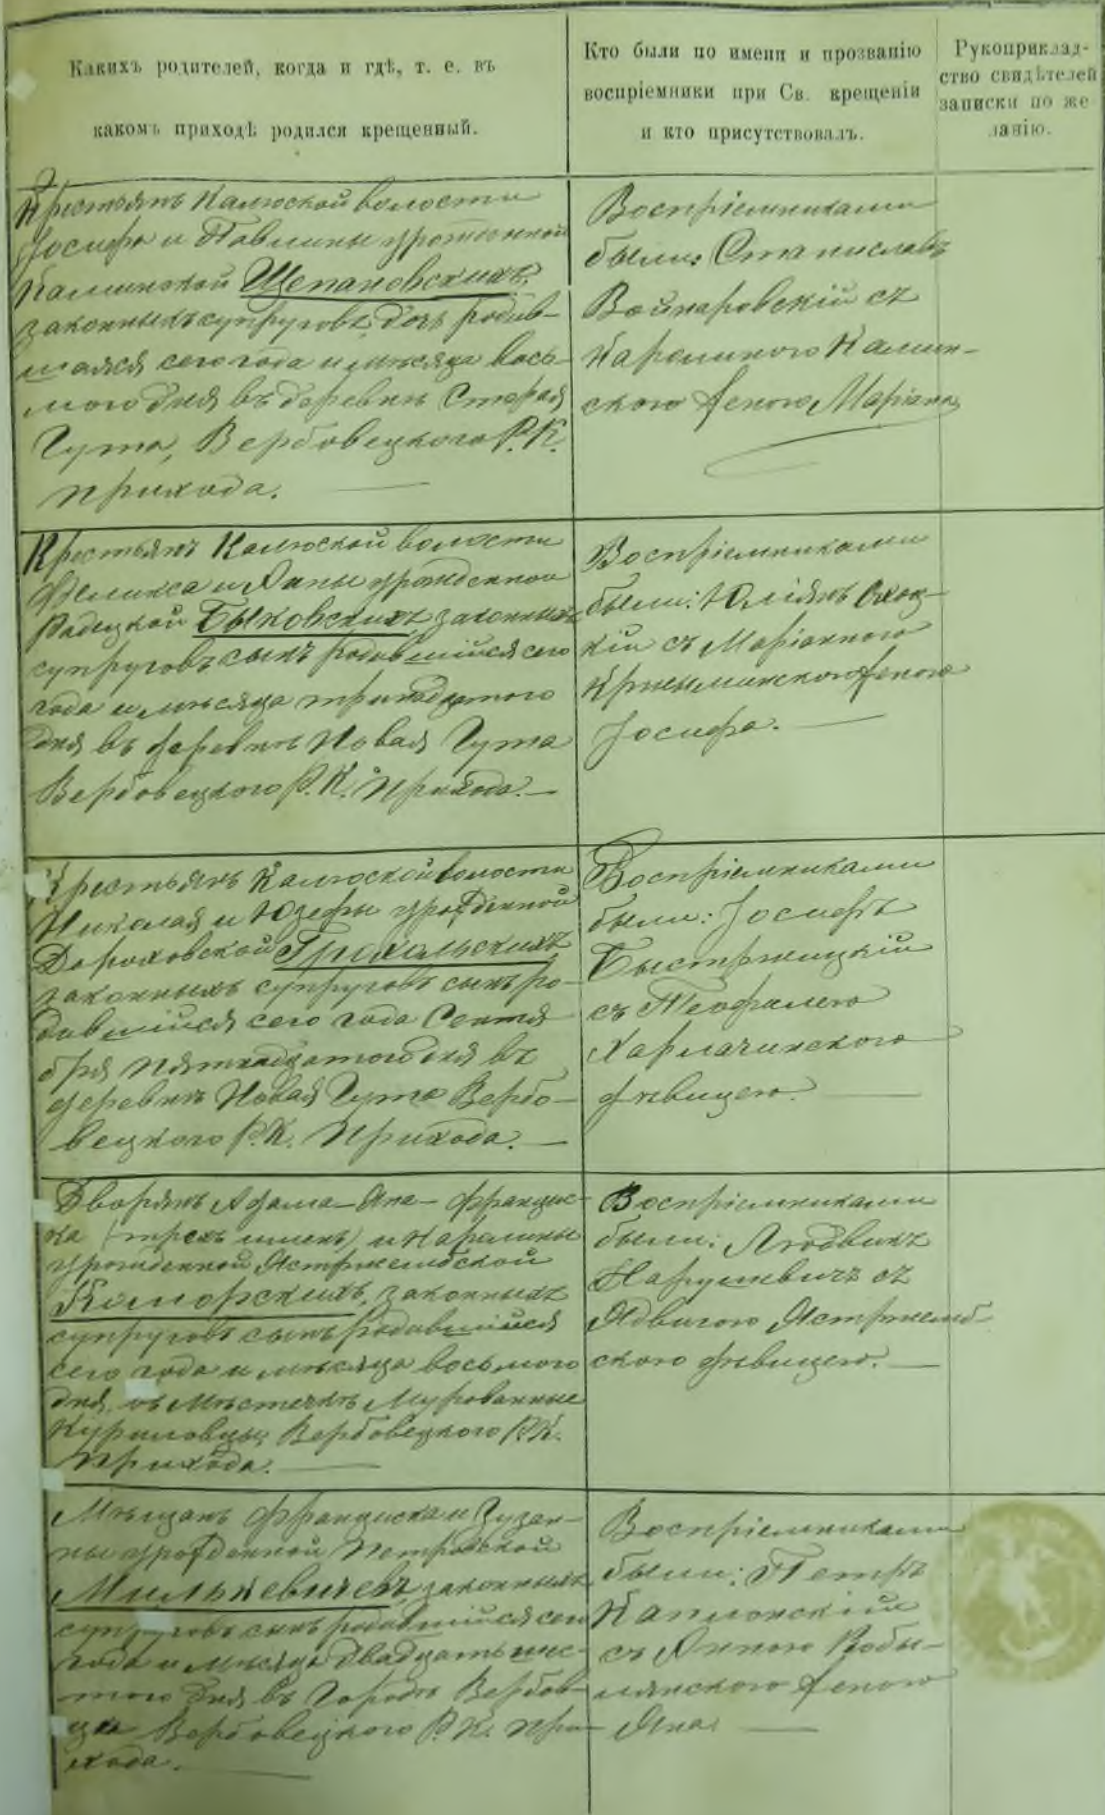 Какихъ родителей, когда и гдѣ, т. е. въ
какомъ приходѣ родился крещенный.
Кто были по имени и прозванію
воспріемники при Св. крещеніи
и кто присутствовалъ.
Рукоприклад-
ство свидѣтелей
записки по же
ланію.
Крестьянъ Калюской волости
Іосифа и Павлины урожденной
Калинской Щепановскихъ,
законныхъ супруговъ, дочь родив-
шаяся сего года и мѣсяца вось-
мого дня въ деревнѣ Старая
Гута, Вербовецкого Р. К.
прихода.
Воспріемниками
были: Станиславъ
Войнаровскій съ
Каролиною Калин-
скою женою Маріана
Крестьянъ Калюской волости
Феликса и Анны урожденной
Радецкой Быковскихъ законныхъ
супруговъ сынъ родившійся сего
года и мѣсяца тринадцатого
дня въ деревнѣ Новая Гута
Вербовецкого Р. К. прихода.
Воспріемниками
были: Юліянъ
кій съ Маріанною
женою
Іосифа.
Крестьянъ Калюской волости
Николая и Юзефы урожденной
Дороховской Грохольскихъ
законныхъ супруговъ сынъ ро-
дившійся сего года Сентя
бря пятнадцатого дня въ
деревнѣ Новая Гута Вербо-
вецкого Р. К. прихода.
Воспріемниками
были: Іосифъ
Быстржицкій
съ Теофилею
Харлачинскою
дѣвицею.
Дворянъ Адама-Яна-Францис-
ка (трехъ именъ) и Каролины
урожденной Ястржембской
Коморскихъ, законныхъ
супруговъ сынъ родившійся
сего года и мѣсяца восьмого
дня въ мѣстечкѣ Мурованные
Куриловцы, Вербовецкого Р. К.
прихода.
Воспріемниками
были: Людвикъ
Нарушевичъ съ
Ядвигою Ястржемб-
скою дѣвицею.
Мѣщанъ Франциска и Зузан-
ны урожденной Петровской
Милькевичевъ, законныхъ
супруговъ сынъ родившійся сего
года и мѣсяца двадцать шес-
того дня въ городѣ Вербов-
цѣ Вербовецкого Р. К. при-
хода.
Воспріемниками
были: Петръ
Каплонскій
съ Анною Кобы-
лянскою женою
Яна.